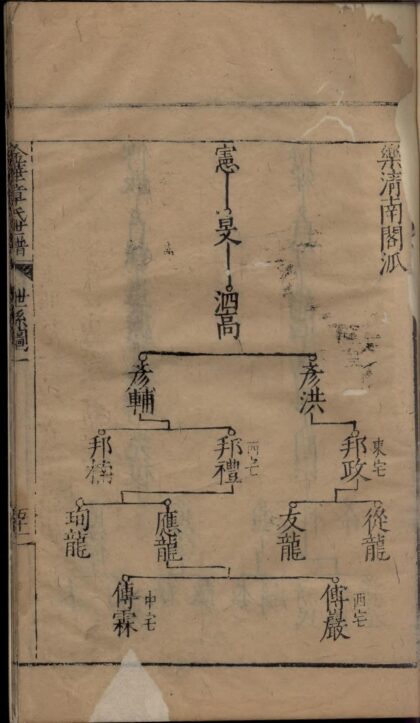 樂清南閣派
憲
旻
泗高
彥洪
彥輔
邦政
東宅
邦禮
西宅
邦
從龍
友龍
應龍
龍
傳嚴
西宅
傳霖
中宅
金華章氏世譜
世系圖